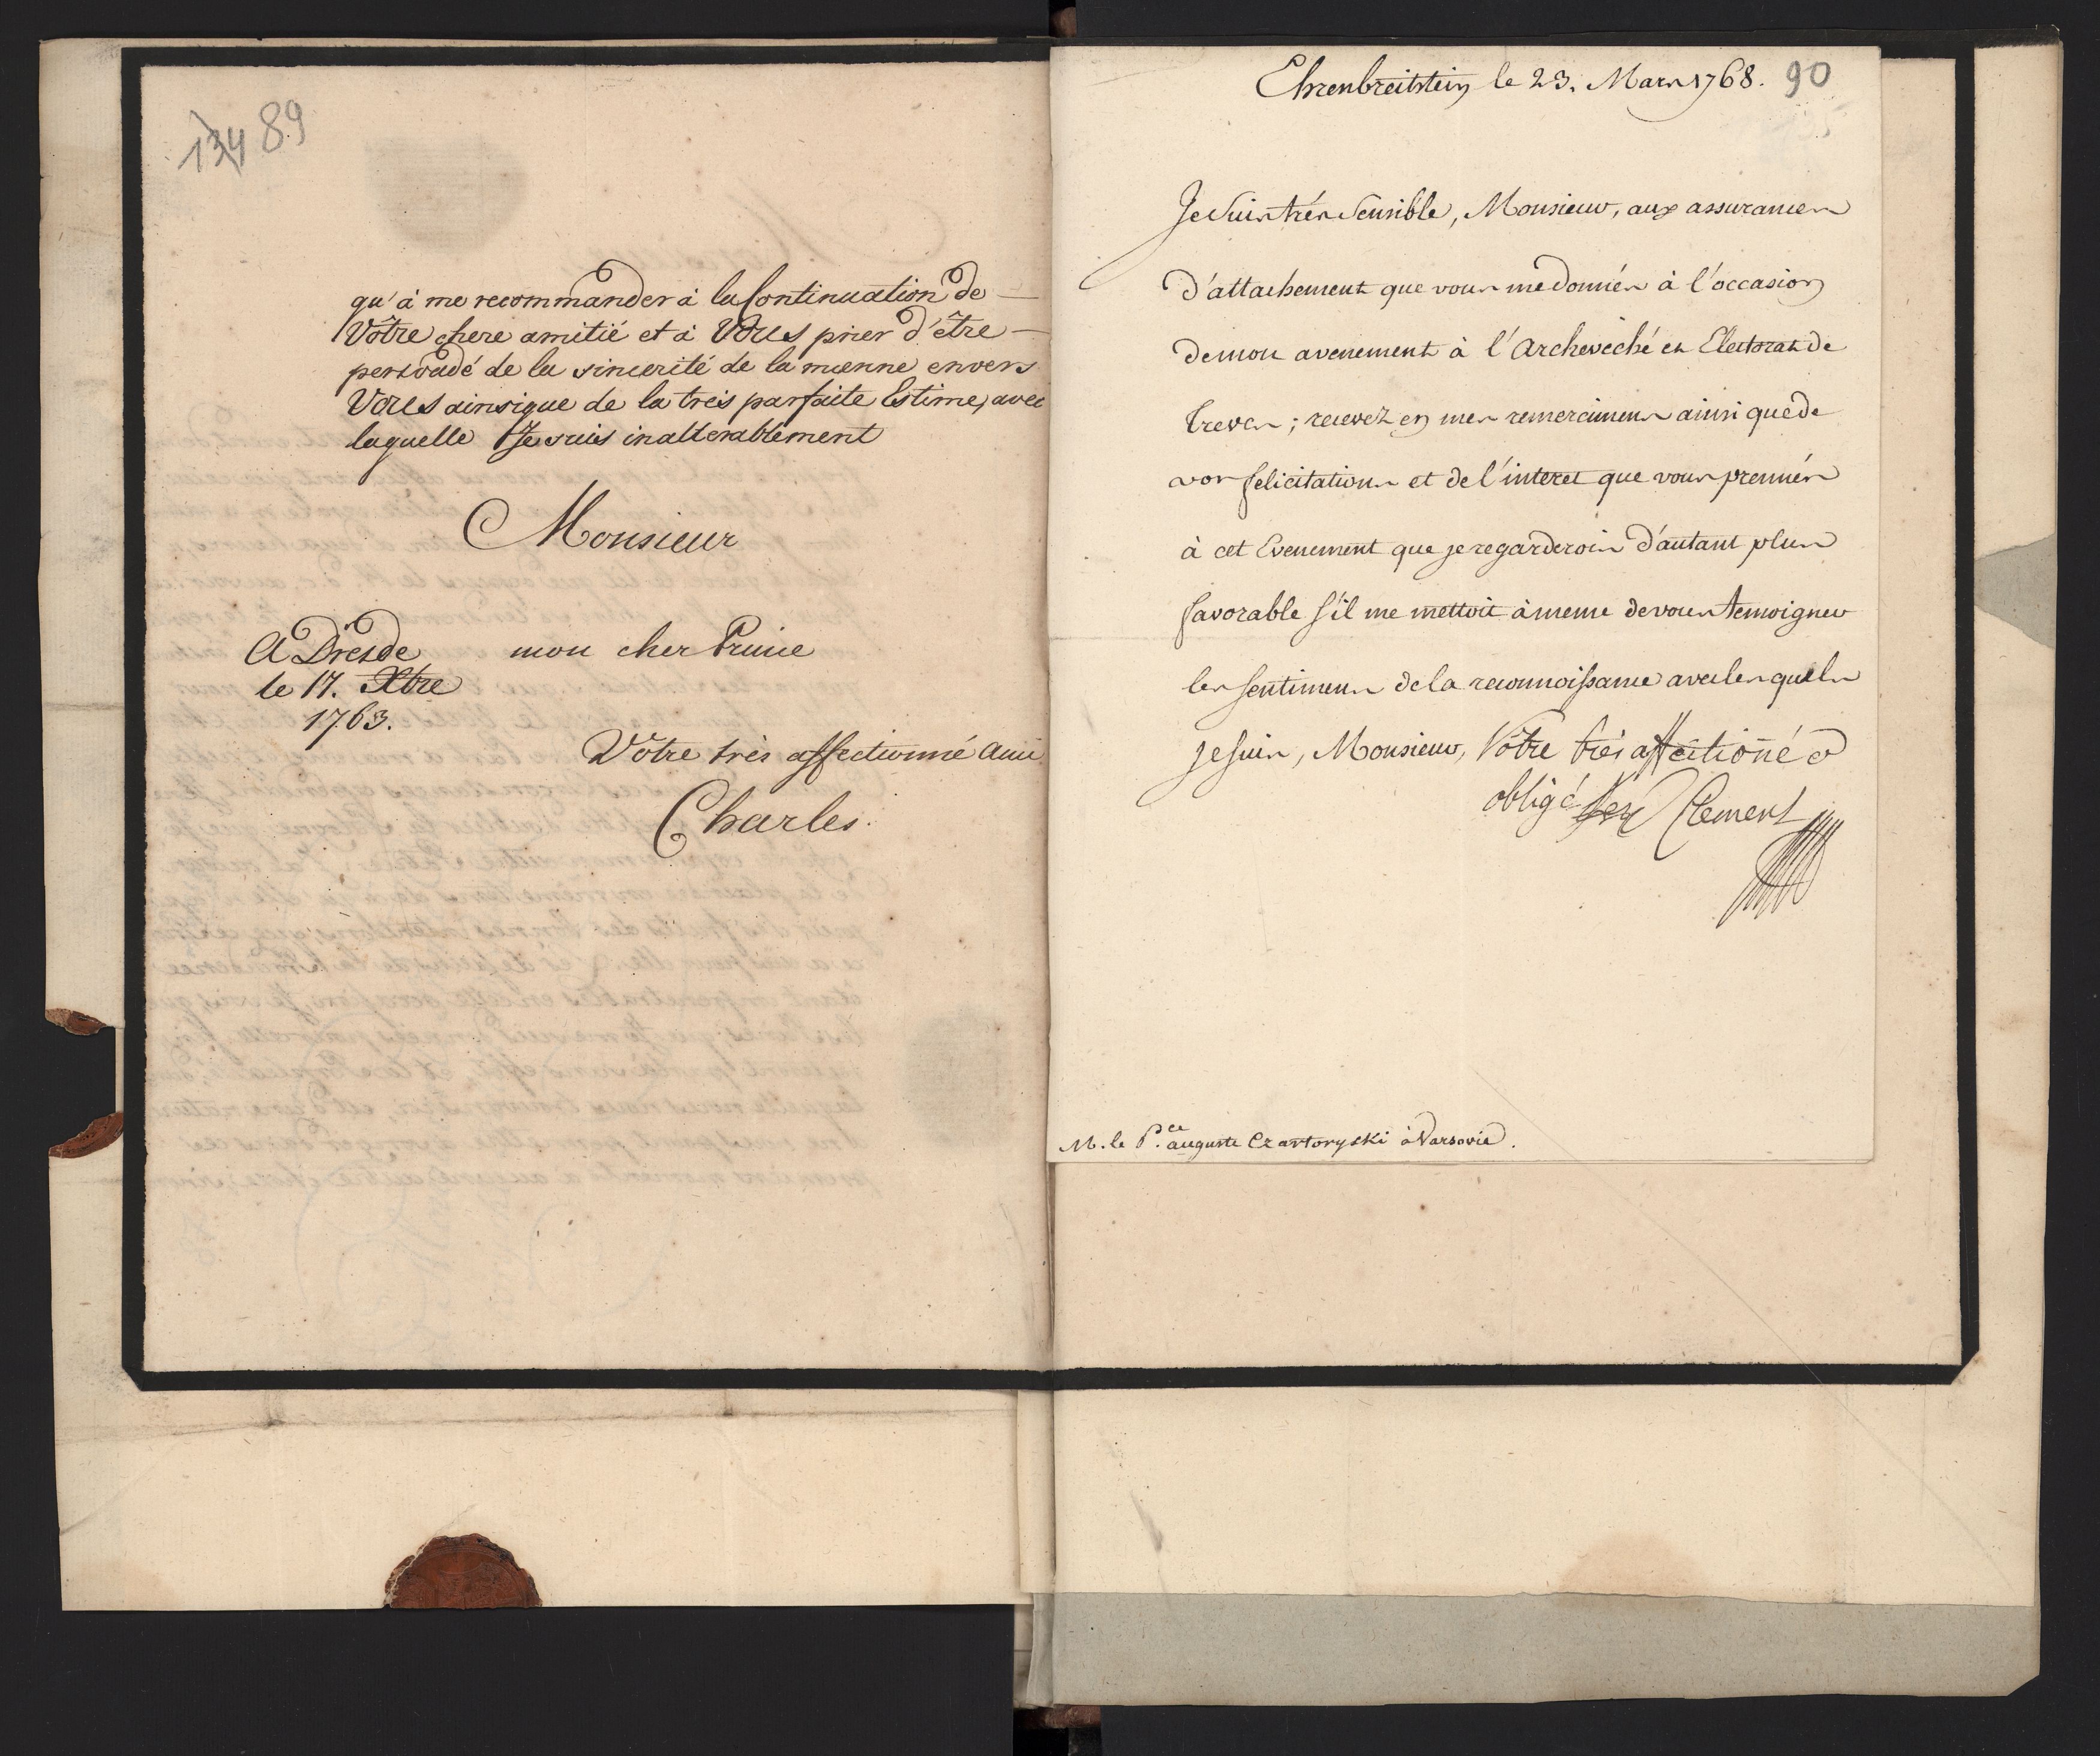 134 89
qu'à me recommander à la Continuation de
Vôtre chere amitié et à Vous prier d'être
persoadé de la sincerité de la mienne envers
Vous ainsique de la treis parfaite Estime, avec
laquelle Je suis inalterablement
Monsieur
mon cher Prince
A Dresde
le 17. Xbre
1763.
Votre très affectionné Ami
Charles.
Ehrenbreitstein le 23. Mars 1768. 90
Je Suis trés Sensible, Monsieur, aux assurances
d'attachement que vous me donnés à l'occasion
de mon avenement à l'Archeveché et Electorat de
Treves; recevez en mes remercimens ainsi que de
vos felicitations et de l'interet que vous prennés
à cet Evenement que je regarderois d'autant plus
favorable s'il me mettoit à meme de vous temoigner
les sentimens de la reconnoissance avec lesquels
je suis, Monsieur, Vôtre trés affectioñé &
obligé Clement
M. le P.ce auguste Czartoryski à Varsovie.